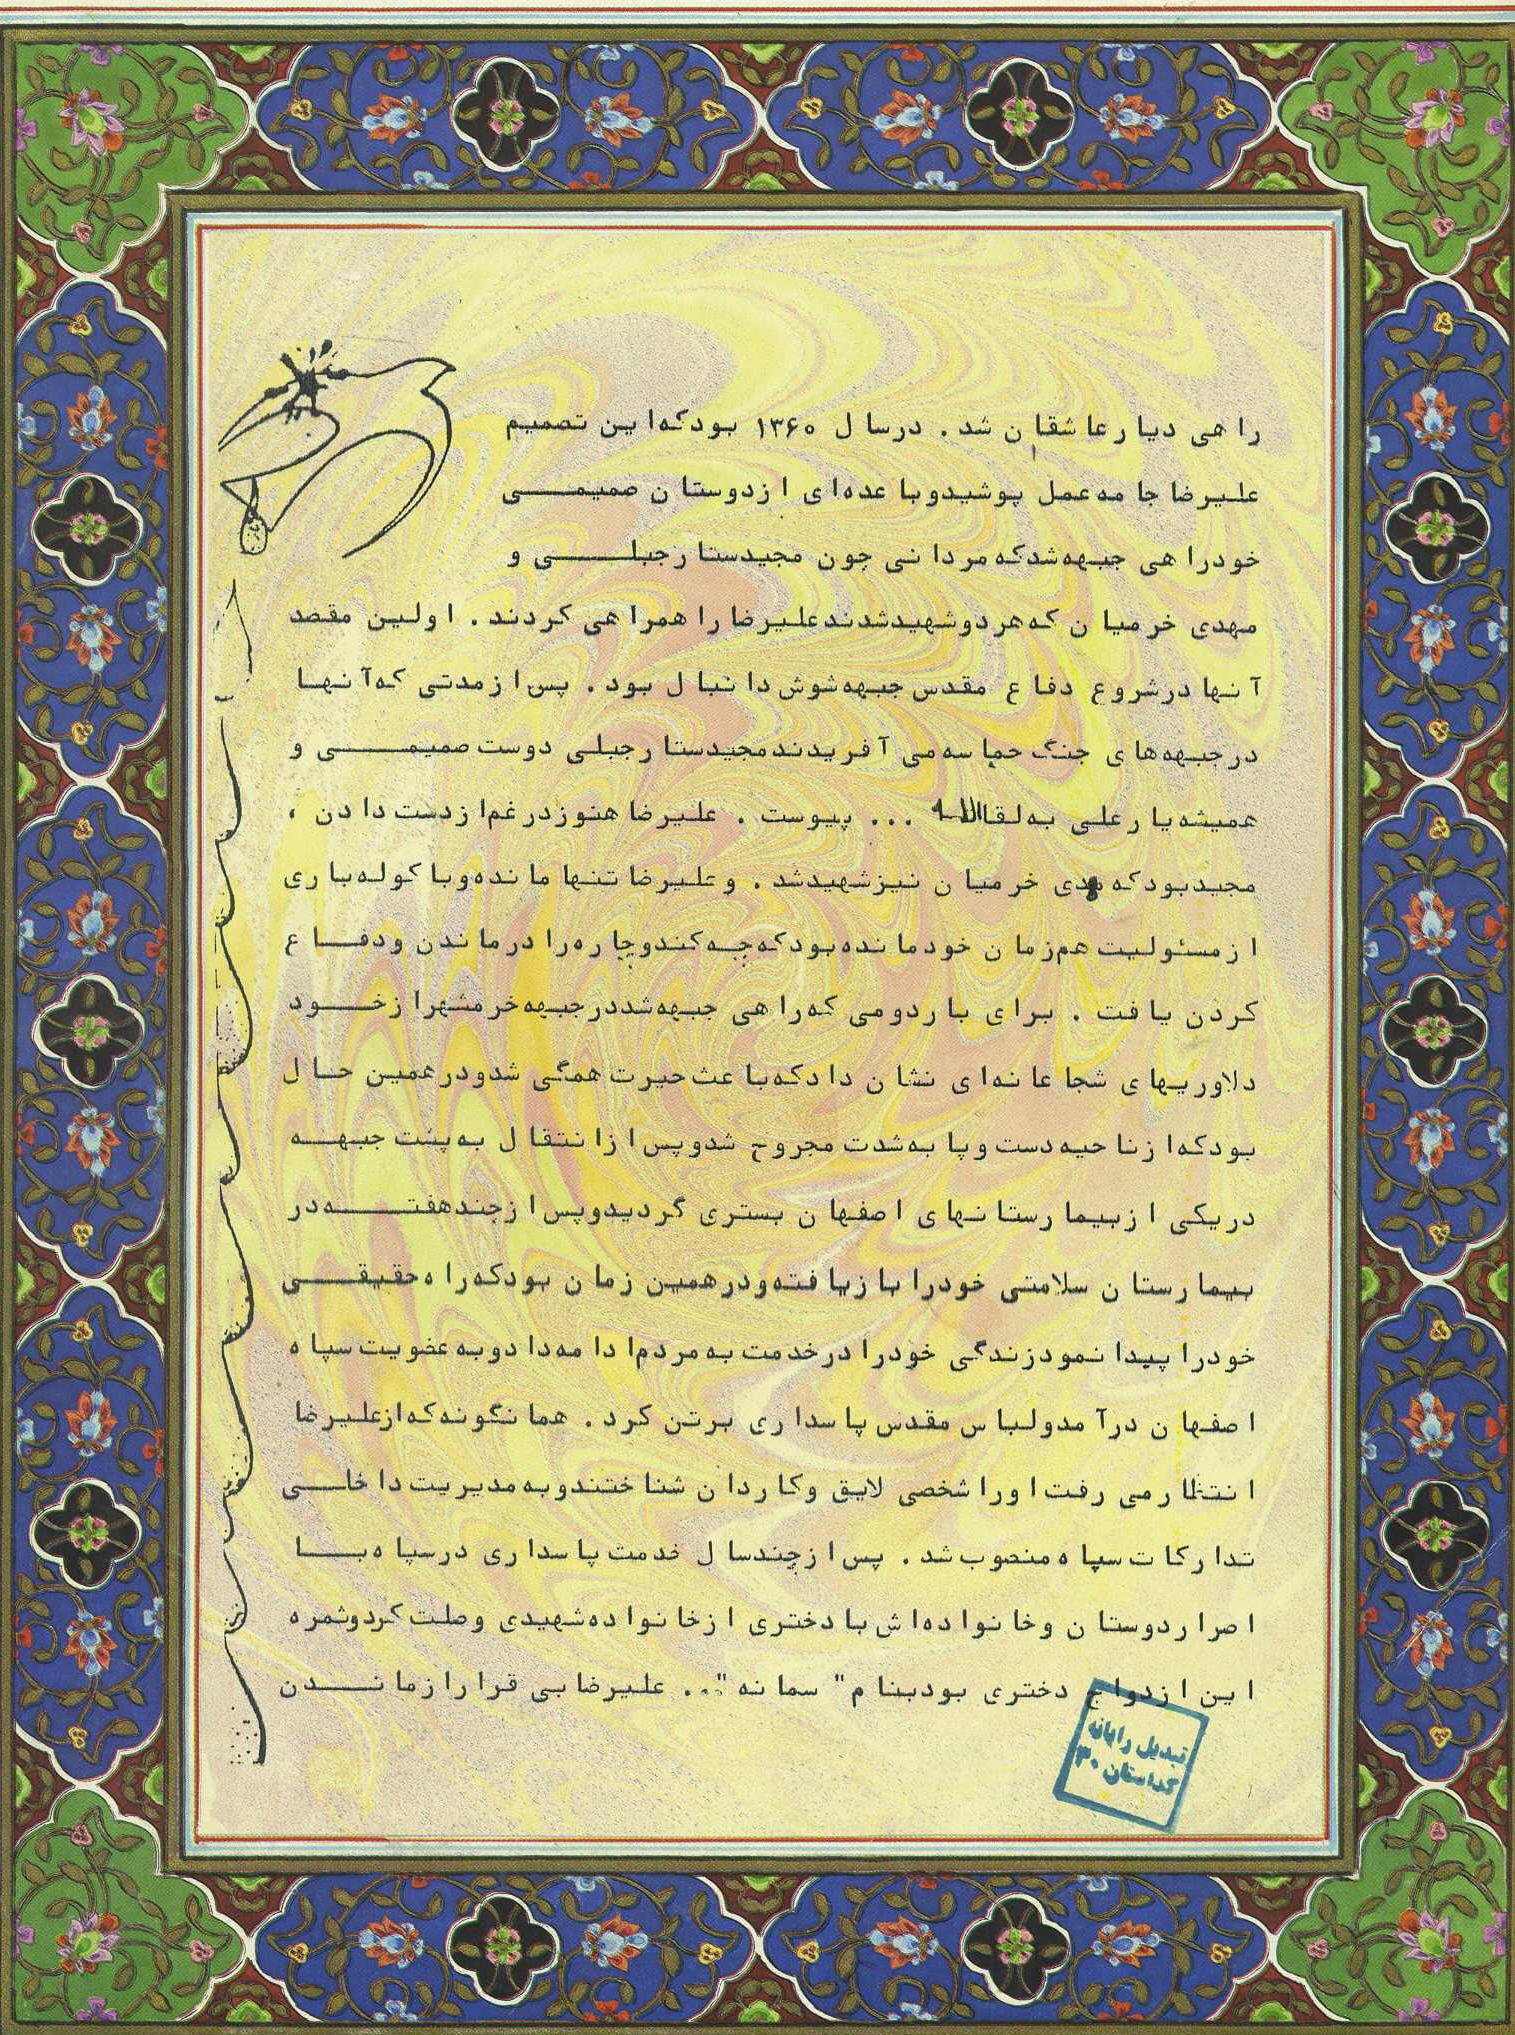 راهی دیار عاشقان شد . در سال ۱۳۶۰ بود که این تصمیم
علیرضا جامه عمل پوشید و با عده‌ای از دوستان صمیمی
خود راهی جبهه شد که مردانی چون مجید ستار جبلی و
مهدی خرمیان که هر دو شهید شدند علیرضا را همراهی کردند . اولین مقصد
آنها در شروع دفاع مقدس جبهه شوش دانیال بود . پس از مدتی که آنها
در جبهه‌های جنگ حماسه می آفریدند مجید ستار جبلی دوست صمیمی و
همیشه یار علی به لقاالله ... پیوست . علیرضا هنوز در غم از دست دادن ،
مجید بود که مهدی خرمیان نیز شهید شد . و علیرضا تنها مانده و با کوله باری
از مسئولیت همزمان خود مانده بود که چه کند و چاره را در ماندن و دفاع
کردن یافت . برای بار دومی که راهی جبهه شد در جبهه خرمشهر از خود
دلاوریهای شجاعانه‌ای نشان داد که باعث حیرت همگی شد و در همین حال
بود که از ناحیه دست و پا به شدت مجروح شد و پس از انتقال به پشت جبهه
در یکی از بیمارستانهای اصفهان بستری گردید و پس از چند هفته در
بیمارستان سلامتی خود را بازیافته و در همین زمان بود که راه حقیقی
خود را پیدا نمود زندگی خود را در خدمت به مردم ادامه داد و به عضویت سپاه
اصفهان درآمد و لباس مقدس پاسداری برتن کرد . همانگونه که از علیرضا
انتظار می رفت او را شخصی لایق و کاردان شناختند و به مدیریت داخلی
تدارکات سپاه منصوب شد . پس از چند سال خدمت پاسداری در سپاه با
اصرار دوستان و خانواده‌اش با دختری از خانواده شهیدی وصلت کرد و ثمره
این ازدواج دختری بود بنام " سمانه "... علیرضا بی قرار از ماندن
تبدیل رایانه
گداستان ۳۰